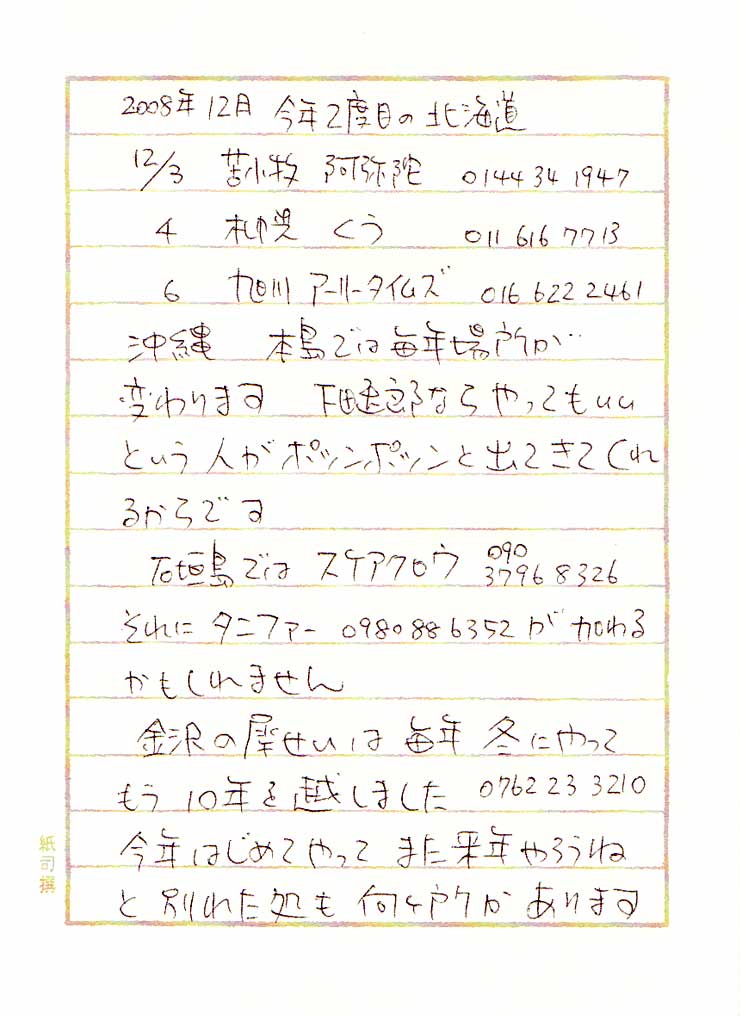 2008年12月 今年2度目の北海道
12/3 苫小牧 阿弥陀 0144 34 1947
4 札幌 くう 011 616 7713
6 旭川 アーリータイムズ 016 622 2461
沖縄 本島では毎年場所が
変わります 下田逸郎ならやってもいい
という人がポツンポツンと出てきてくれ
るからです
石垣島では スケアクロウ 090 3796 8326
それに タニファー 0980 88 6352 が加わる
かもしれません
金沢の犀せいは 毎年 冬にやって
もう 10年を越しました 0762 23 3210
今年はじめてやって また来年やろうね
と 別れた処も 何ヶ所か あります
紙司撰